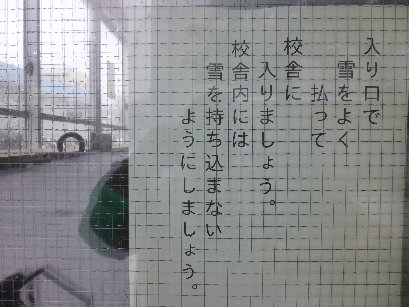 入り口で
雪をよく
払って
校舎に
入りましょう。
校舎内には
雪を持ち込まない
ようにしましょう。